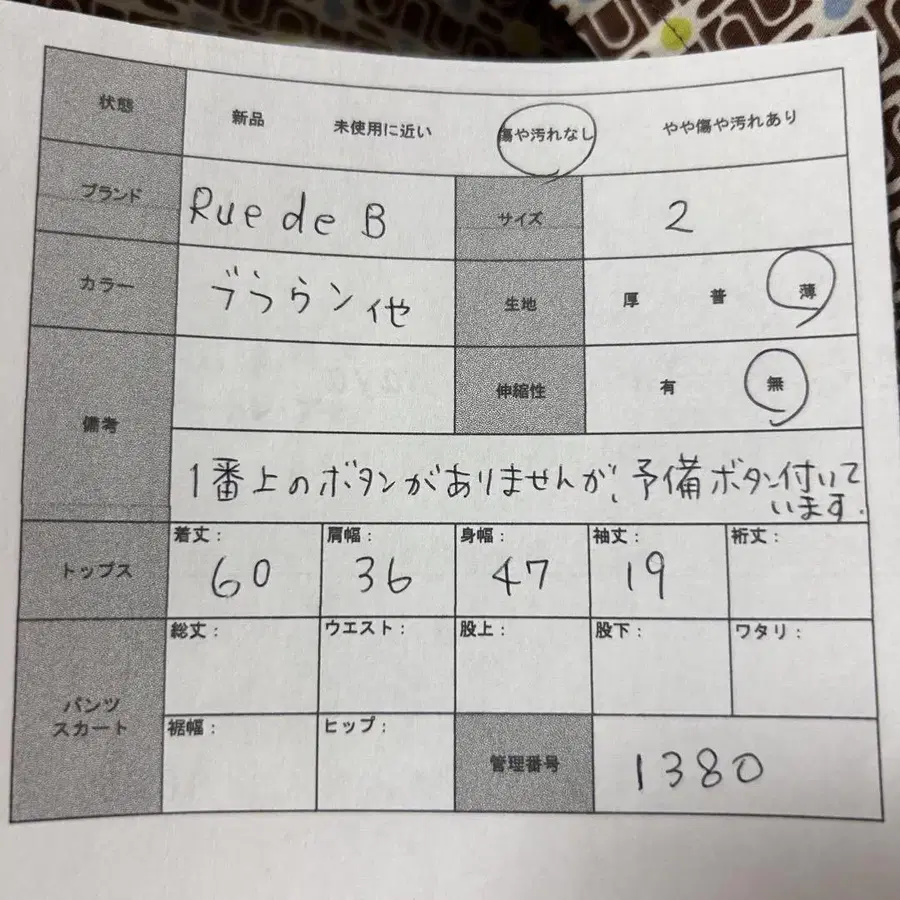 状態 新品 未使用に近い 傷や汚れなし やや傷や汚れあり
ブランド Rue de B サイズ 2
カラー ブラウン他 生地 厚 普 薄
備考 伸縮性 有 無
1番上のボタンがありませんが、予備ボタン付いて
います.
トップス 着丈: 60 肩幅: 36 身幅: 47 袖丈: 19 裄丈:
パンツ
スカート
総丈: ウエスト: 股上: 股下: ワタリ:
裾幅: ヒップ: 管理番号 1380